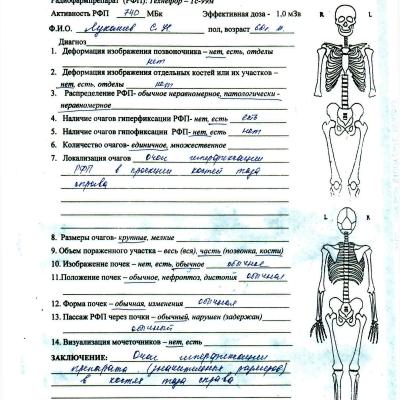 Радиофармпрепарат (РФП): Технефор – Тс-99м
Активность РФП 740 МБк Эффективная доза - 1,0 мЗв
Ф.И.О. С. И. пол, возраст 60 г. м.
Диагноз
1. Деформация изображения позвоночника – нет, есть, отделы
нет
2. Деформация изображения отдельных костей или их участков –
нет, есть, отделы нет
3. Распределение РФП- обычное неравномерное, патологически -
неравномерное
4. Наличие очагов гиперфиксации РФП- нет, есть есть
5. Наличие очагов гипофиксации РФП- нет, есть нет
6. Количество очагов- единичное, множественное
7. Локализация очагов Очаг гиперфиксации
РФП в проекции костей таза
справа
8. Размеры очагов- крупные, мелкие
9. Объем пораженного участка – весь (вся), часть (позвонка, кости)
10. Изображение почек – нет, есть, обычное обычное
11.Положение почек – обычное, нефроптоз, дистопия обычная
12. Форма почек – обычная, изменения обычная
13. Пассаж РФП через почки – обычный, нарушен (задержан)
обычный
14. Визуализация мочеточников – нет, есть
ЗАКЛЮЧЕНИЕ: Очаг гиперфиксации
препарата (значительных размеров)
в костях таза справа
R. L.
L R